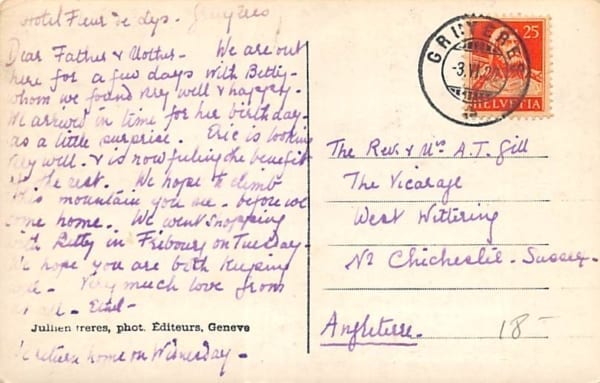 Hotel Fleur de Lys. Gruyères
Dear Father & Mother - We are out
here for a few days with Betty -
whom we found very well & happy -
We arrived in time for her birthday -
as a little surprise. Eric is looking
very well. & is now feeling the benefit
of the rest. We hope to climb
this mountain you see - before we
come home. We went shopping
with Betty in Fribourg on Tuesday -
We hope you are both keeping
well - Very much love from
all - Ethel -
Jullien freres, phot. Éditeurs, Geneve
We return home on Wednesday -
GRUYÈRES
-3.VI.
25
HELVETIA
The Rev. & Mrs A.T. Gill
The Vicarage
West Wittering
Nr Chichester - Sussex -
Angleterre -
18 -